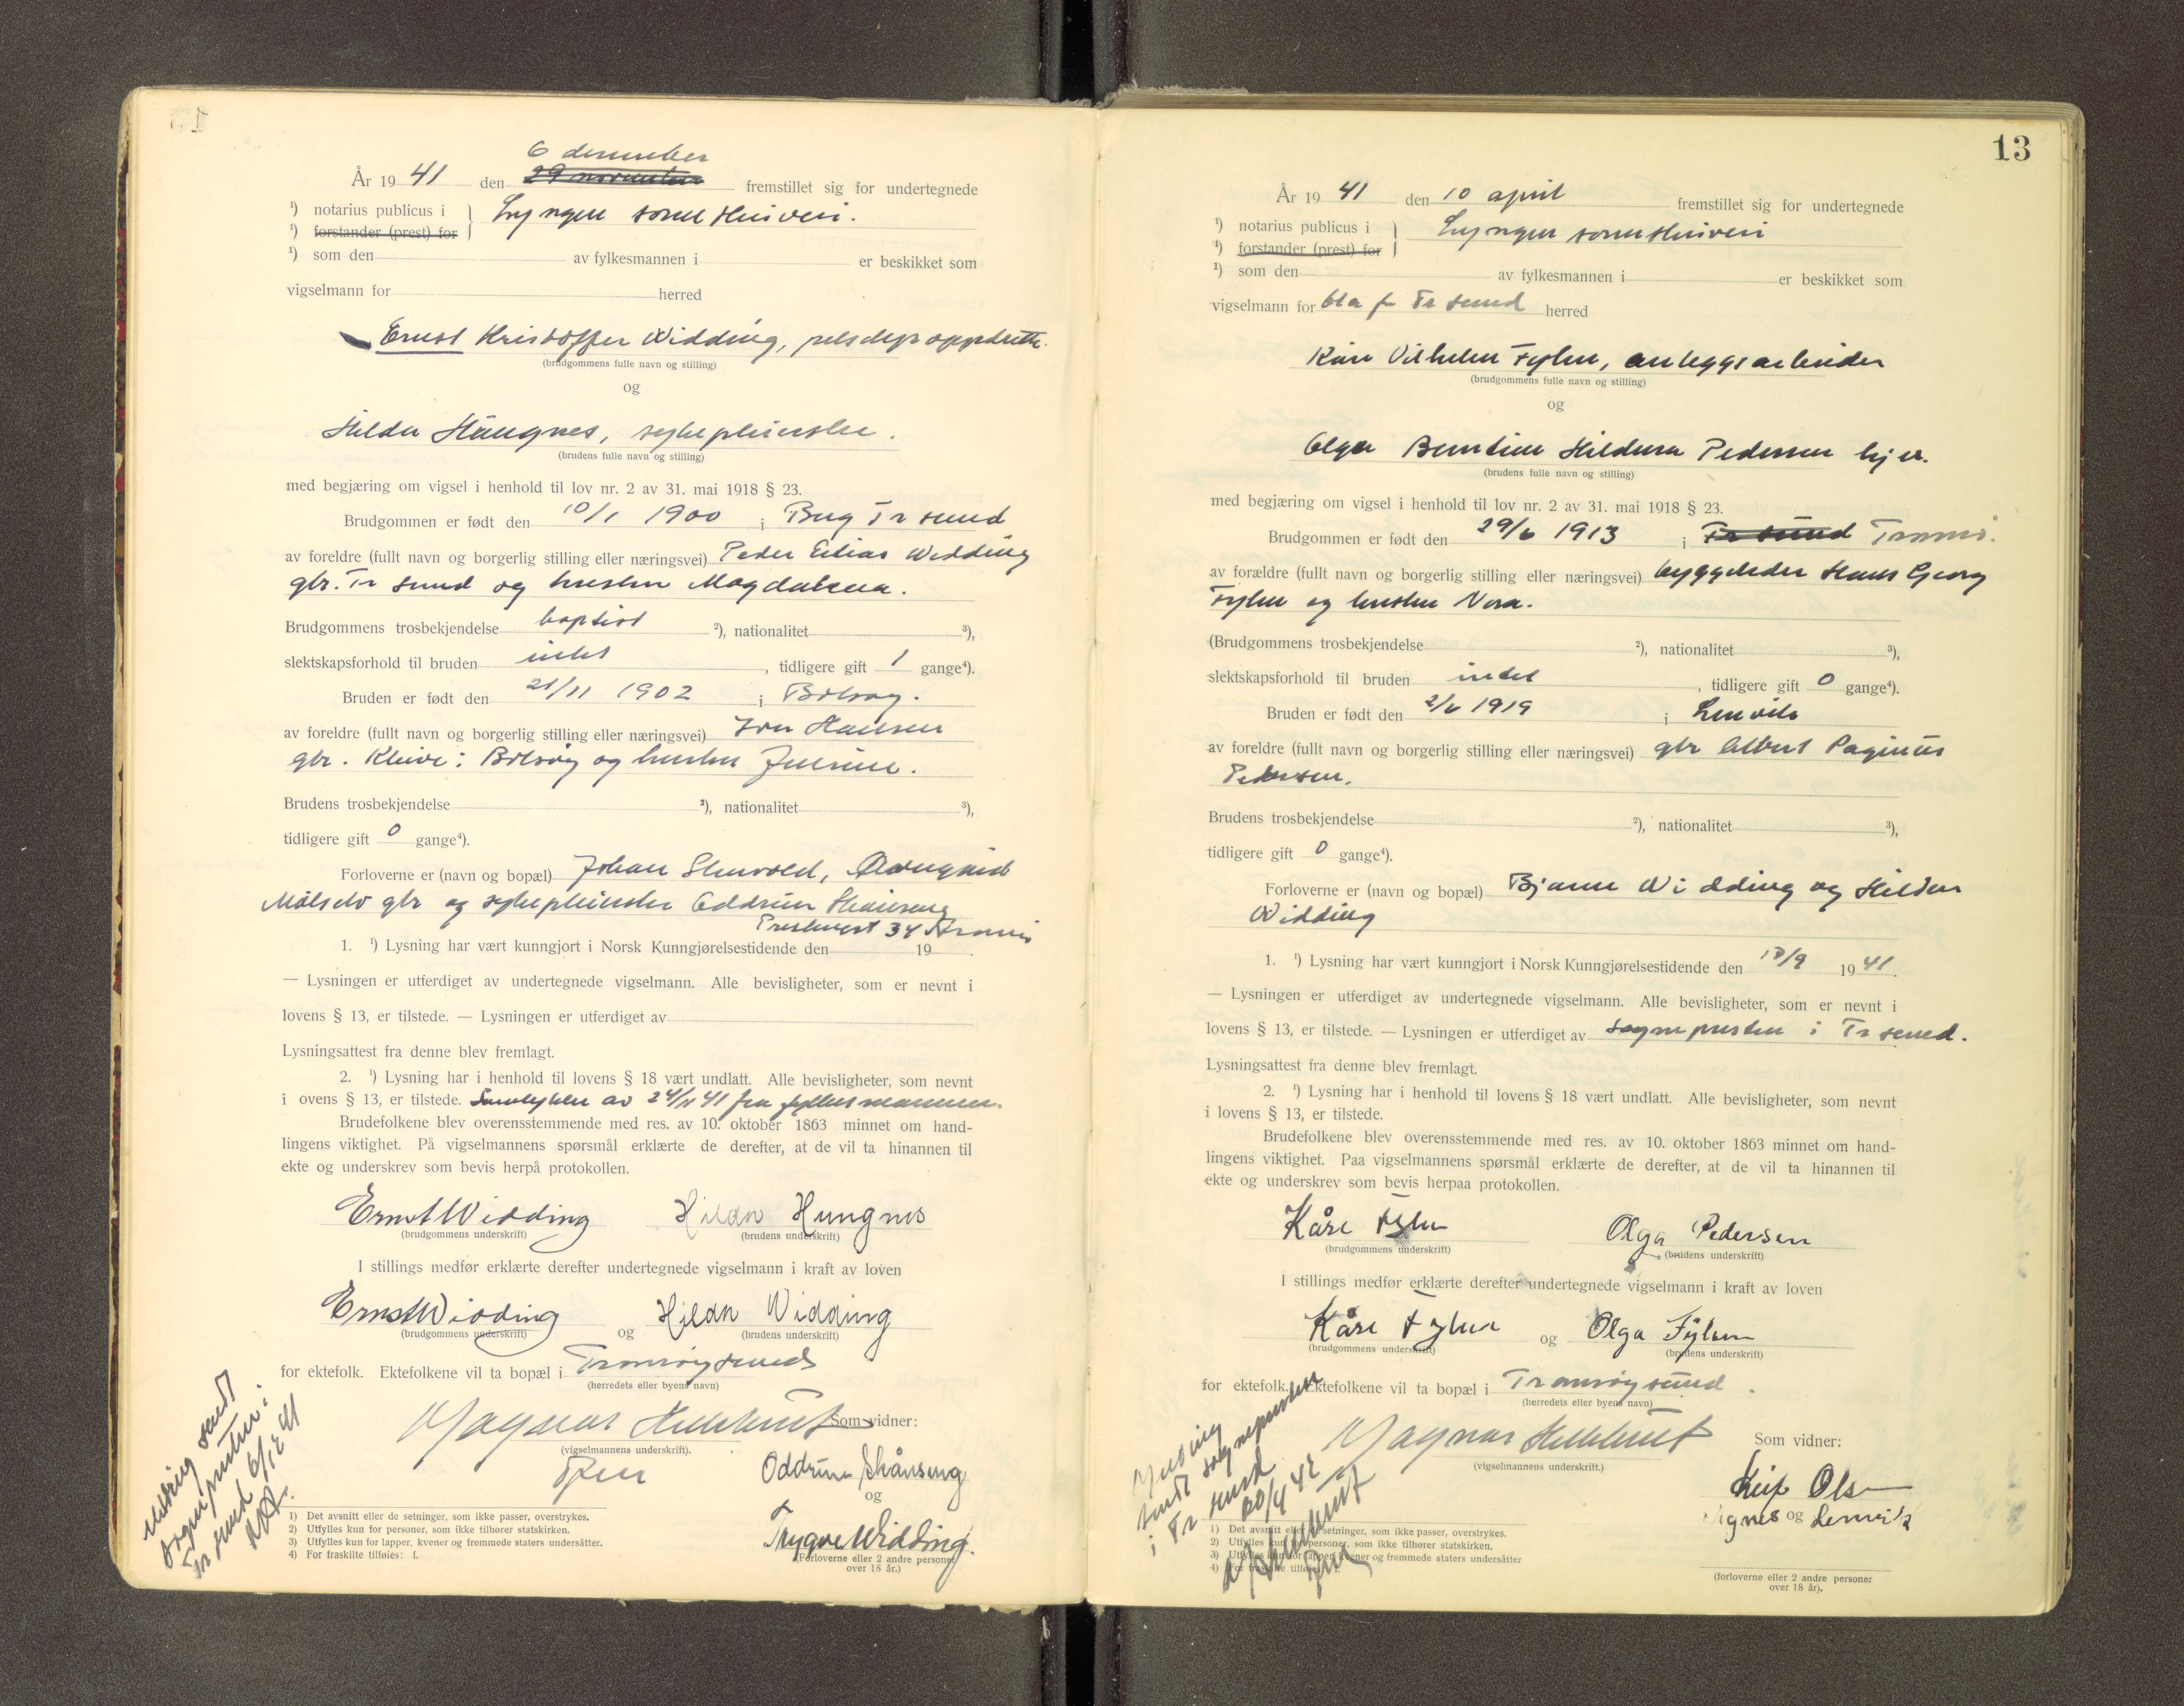 6 desember
År 19 41 den 29 november fremstillet sig for undertegnede
¹) notarius publicus i Lyngen sorenskriveri.
¹) forstander (prest) for
¹) som den av fylkesmannen i er beskikket som
vigselmann for herred
Ernst Kristoffer Widding, pelsdyroppdretter
(brudgommens fulle navn og stilling)
og
Hilda Haugnes, sykepleierske.
(brudens fulle navn og stilling)
med begjæring om vigsel i henhold til lov nr. 2 av 31. mai 1918 § 23.
Brudgommen er født den 10/1 1900 i Berg Tr sund
av foreldre (fullt navn og borgerlig stilling eller næringsvei) Peder Elias Widding
gbr. Tr sund og hustru Magdalena.
Brudgommens trosbekjendelse baptist ²), nationalitet ³),
slektskapsforhold til bruden intet , tidligere gift 1 gange⁴).
Bruden er født den 21/11 1902 i Bolsøy.
av foreldre (fullt navn og borgerlig stilling eller næringsvei) Iver Hansen
gbr. Kleive i Bolsøy og hustru
Brudens trosbekjendelse ²), nationalitet ³),
tidligere gift 0 gange⁴).
Forloverne er (navn og bopæl) Johan
Målselv gbr og sykepleierske Oddrun
34 Tromsø
1. ¹) Lysning har vært kunngjort i Norsk Kunngjørelsestidende den 19 .
— Lysningen er utferdiget av undertegnede vigselmann. Alle bevisligheter, som er nevnt i
lovens § 13, er tilstede. — Lysningen er utferdiget av
Lysningsattest fra denne blev fremlagt.
2. ¹) Lysning har i henhold til lovens § 18 vært undlatt. Alle bevisligheter, som nevnt
i ovens § 13, er tilstede. Samtykke av 24/11 41 fra fylkesmannen.
Brudefolkene blev overensstemmende med res. av 10. oktober 1863 minnet om hand-
lingens viktighet. På vigselmannens spørsmål erklærte de derefter, at de vil ta hinannen til
ekte og underskrev som bevis herpå protokollen.
Ernst Widding Hilda Hungnes
(brudgommens underskrift) (brudens underskrift)
I stillings medfør erklærte derefter undertegnede vigselmann i kraft av loven
Ernst Widding og Hilda Widding
(brudgommens underskrift) (brudens underskrift)
for ektefolk. Ektefolkene vil ta bopæl i Tromsøysund
(herredets eller byens navn)
Magnar
Som vidner:
(vigselmannens underskrift).
Oddrun
og
Trygve Widding.
(Forloverne eller 2 andre personer
over 18 år.)
Melding sendt
sognepresten i
Tr sund 6/12 41
1) Det avsnitt eller de setninger, som ikke passer, overstrykes.
2) Utfylles kun for personer, som ikke tilhører statskirken.
3) Utfylles kun for lapper, kvener og fremmede staters undersåtter.
4) For fraskilte tilføies: f.
13
År 19 41 den 10 april fremstillet sig for undertegnede
¹) notarius publicus i Lyngen sorenskriveri
¹) forstander (prest) for
¹) som den av fylkesmannen i er beskikket som
vigselmann for bl a f Tr sund herred
Kåre Vilhelm Fylen, anleggsarbeider
(brudgommens fulle navn og stilling)
og
Olga Berntine Hildura Pedersen hj er.
(brudens fulle navn og stilling)
med begjæring om vigsel i henhold til lov nr. 2 av 31. mai 1918 § 23.
Brudgommen er født den 29/6 1913 i Tr sund Tromsø.
av forældre (fullt navn og borgerlig stilling eller næringsvei) byggeleder Hans Georg
Fylen og hustru Nora.
(Brudgommens trosbekjendelse ²), nationalitet ³),
slektskapsforhold til bruden intet , tidligere gift 0 gange⁴).
Bruden er født den 2/6 1919 i Lenvik
av foreldre (fullt navn og borgerlig stilling eller næringsvei) gbr Albert Paginus
Pedersen.
Brudens trosbekjendelse ²), nationalitet ³),
tidligere gift 0 gange⁴).
Forloverne er (navn og bopæl) Bjarne Widding og Hildur
Widding
1. ¹) Lysning har vært kunngjort i Norsk Kunngjørelsestidende den 13/9 1941.
— Lysningen er utferdiget av undertegnede vigselmann. Alle bevisligheter, som er nevnt i
lovens § 13, er tilstede. — Lysningen er utferdiget av sognepresten i Tr sund.
Lysningsattest fra denne blev fremlagt.
2. ¹) Lysning har i henhold til lovens § 18 vært undlatt. Alle bevisligheter, som nevnt
i lovens § 13, er tilstede.
Brudefolkene blev overensstemmende med res. av 10. oktober 1863 minnet om hand-
lingens viktighet. Paa vigselmannens spørsmål erklærte de derefter, at de vil ta hinannen til
ekte og underskrev som bevis herpaa protokollen.
Kåre Fylen Olga Pedersen
(brudgommens underskrift) (brudens underskrift)
I stillings medfør erklærte derefter undertegnede vigselmann i kraft av loven
Kåre Fylen og Olga Fylen
(brudgommens underskrift) (brudens underskrift)
for ektefolk. Ektefolkene vil ta bopæl i Tromsøysund.
(herredets eller byens navn)
Magnar
Som vidner:
(vigselmannens underskrift.)
Leif Olsen
og
(forloverne eller 2 andre personer
over 18 år).
Melding
sendt sognepresten
i Tr sund
20/4 42
1) Det avsnitt eller de setninger, som ikke passer, overstrykes.
2) Utfylles kun for personer, som ikke tilhører statskirken.
3) Utfylles kun for lapper, kvener og fremmede staters undersåtter
4) For fraskilte tilføies